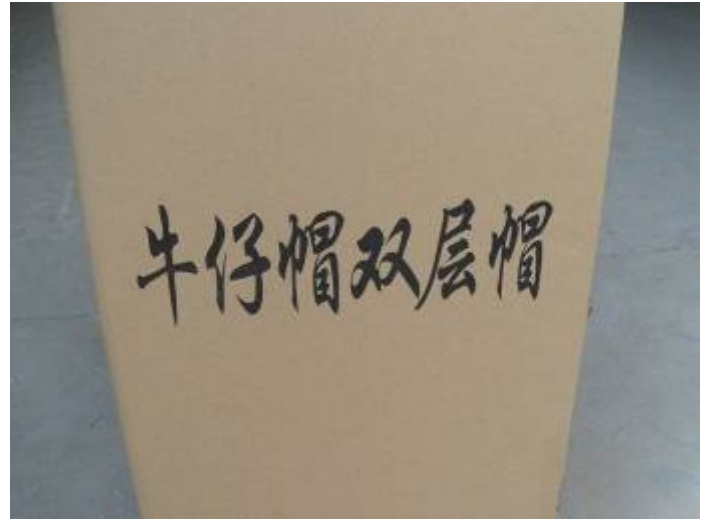 牛仔帽双层帽